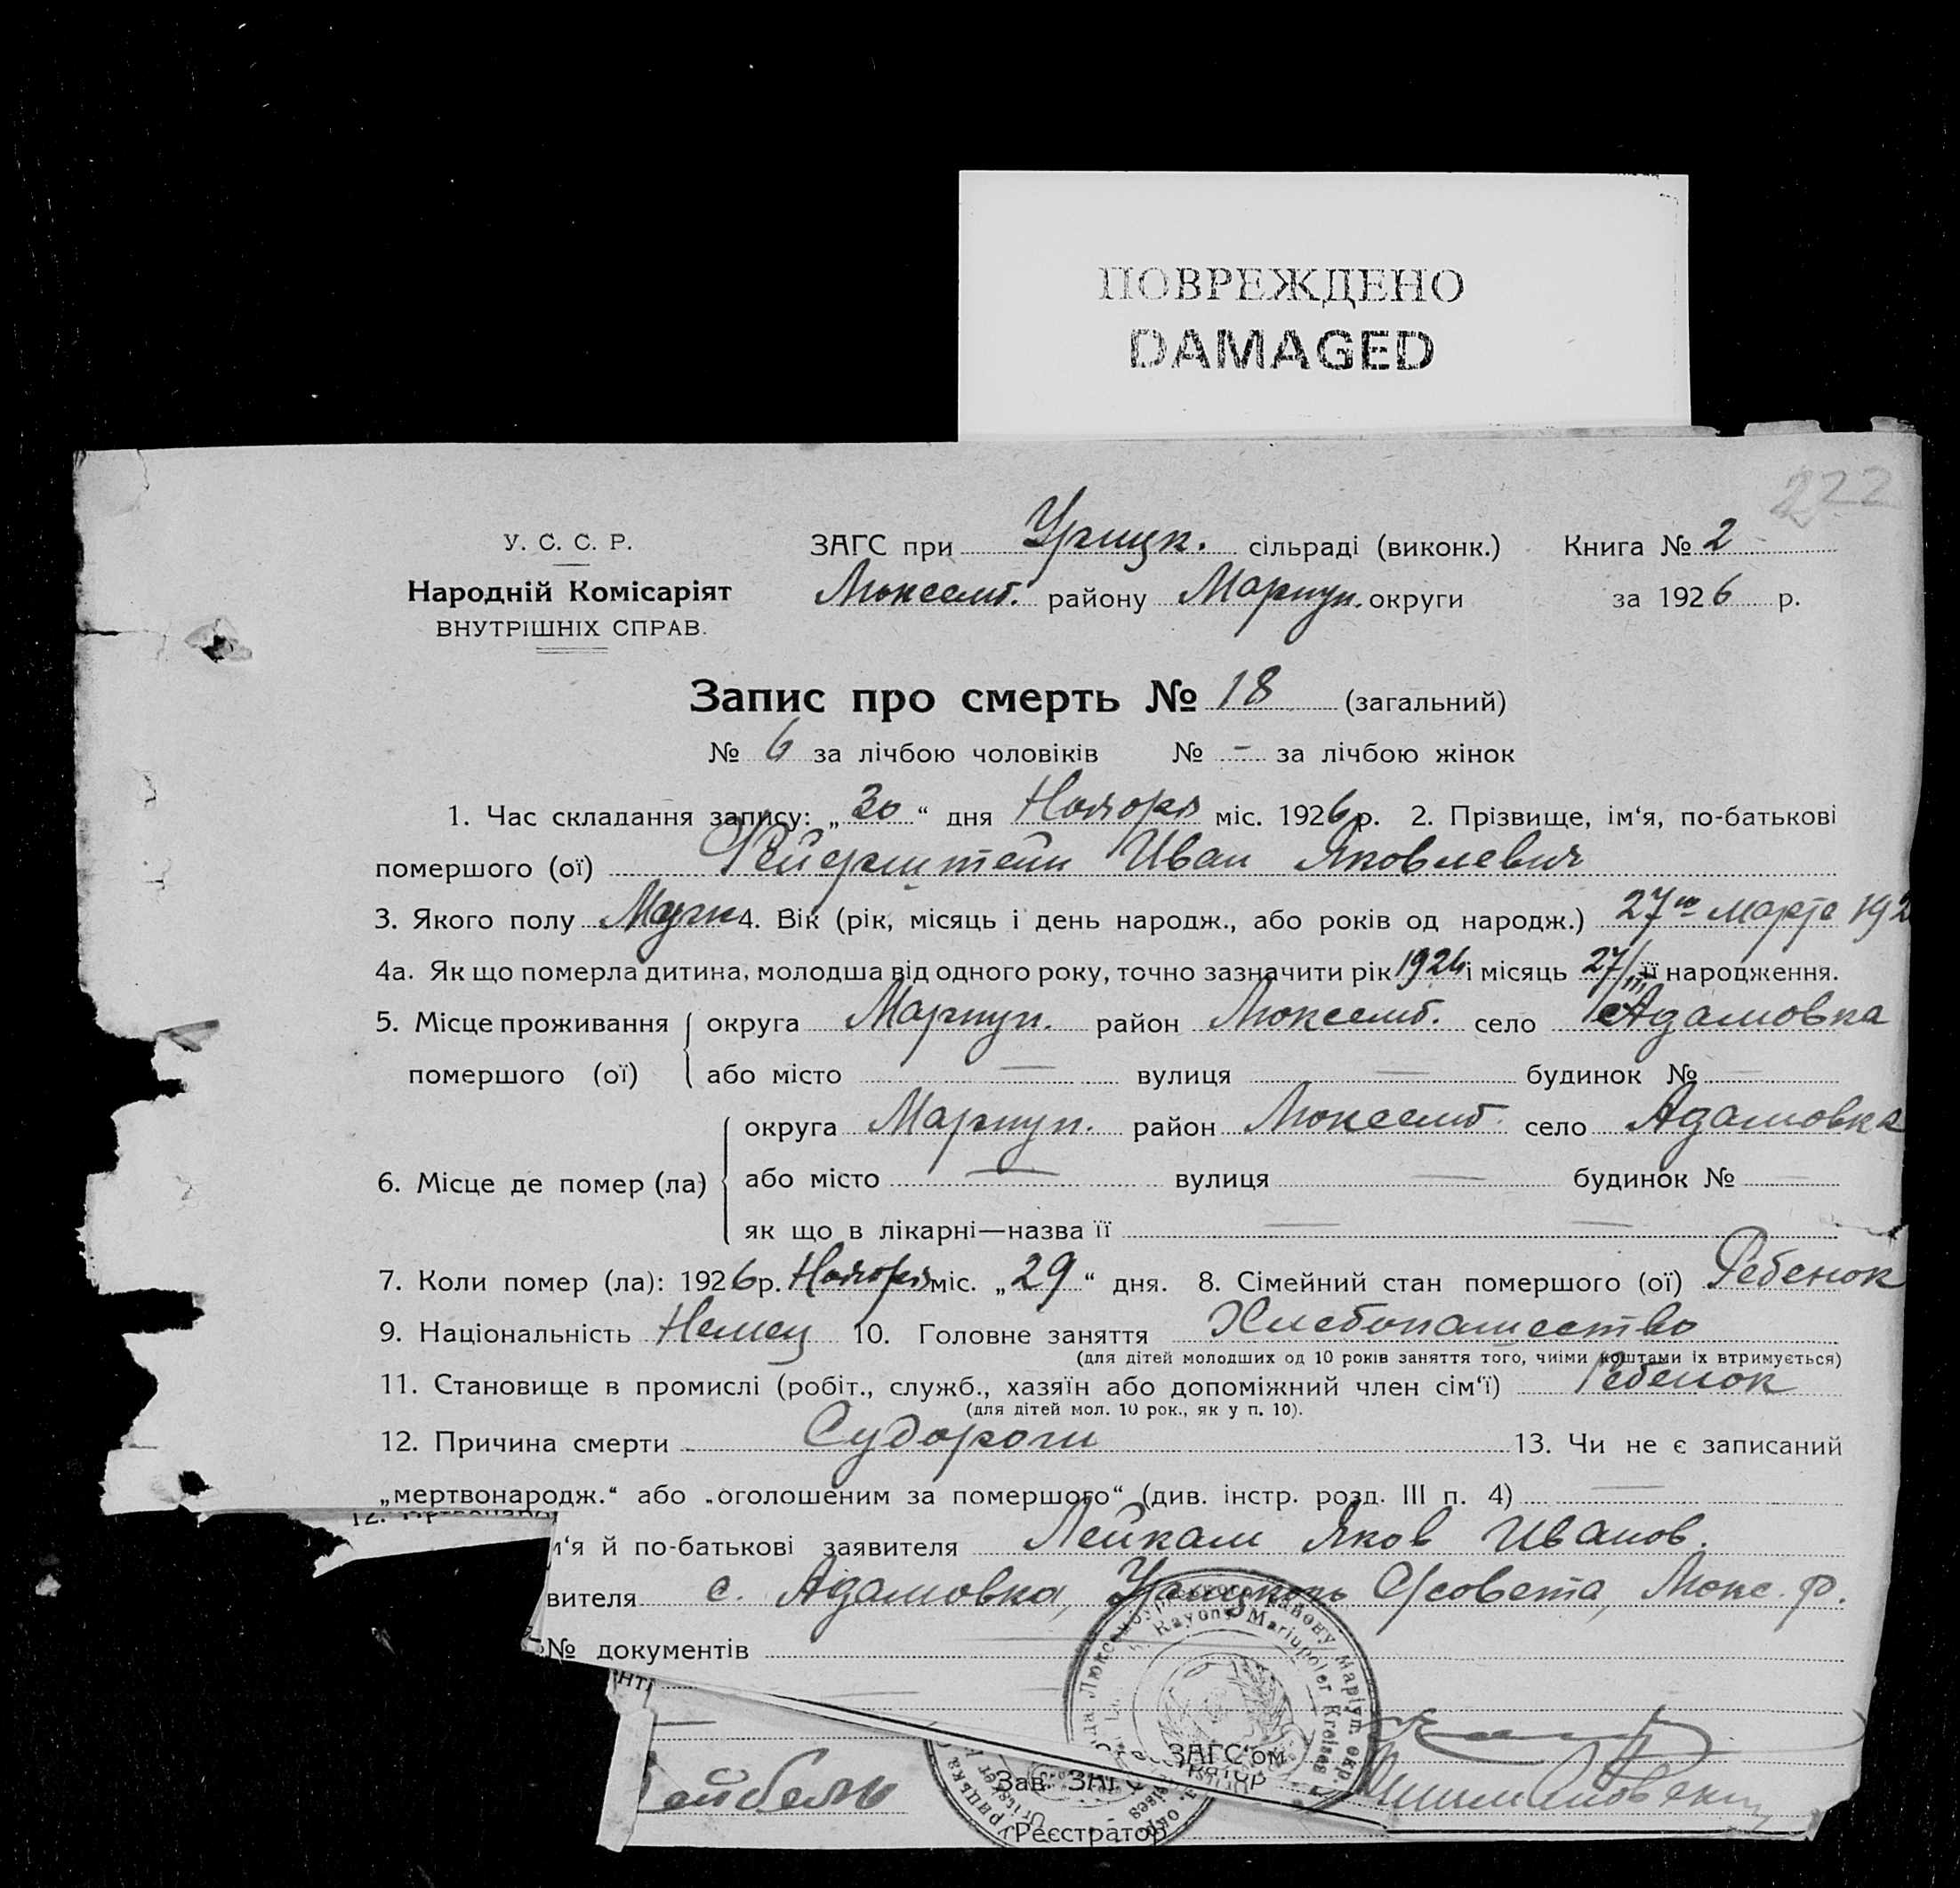 ПОВРЕЖДЕНО
DAMAGED
222
У. С. С. Р.
Народній Комісаріят
ВНУТРІШНІХ СПРАВ.
ЗАГС при Урицк. сільраді (виконк.) Книга № 2
Люксемб. району Мариуп. округи за 1926 р.
Запис про смерть № 18 (загальний)
№ 6 за лічбою чоловіків № - за лічбою жінок
1. Час складання запису: „30“ дня Ноября міс. 1926 р. 2. Прізвище, ім‘я, по-батькові
помершого (ої) Иван Яковлевич
3. Якого полу Мужч 4. Вік (рік, місяць і день народж., або років од народж.) 27го марта 192
4а. Як що померла дитина, молодша від одного року, точно зазначити рік 1926 і місяць 27/III її народження.
5. Місце проживання помершого (ої) округа Мариуп. район Люксемб. село Адамовка
або місто — вулиця — будинок № —
6. Місце де помер (ла) округа Мариуп. район Люксемб. село Адамовка
або місто — вулиця — будинок № —
як що в лікарні—назва її — —
7. Коли помер (ла): 1926 р. Ноября міс. „29“ дня. 8. Сімейний стан помершого (ої) Ребенок
9. Національність Немец 10. Головне заняття Хлебопашество
(для дітей молодших од 10 років заняття того, чиїми коштами їх втримується)
11. Становище в промислі (робіт., служб., хазяїн або допоміжний член сім‘ї) Ребенок
(для дітей мол. 10 рок., як у п. 10).
12. Причина смерти Судороги 13. Чи не є записаний
„мертвонародж.“ або „оголошеним за помершого“ (див. інстр. розд. III п. 4) —
м‘я й по-батькові заявителя Лейкам Яков Иванов.
вителя с. Адамовка, С/совета, Люкс. р.
№ документів
ЗАГС‘ом
Зав. ЗАГС
Реєстратор